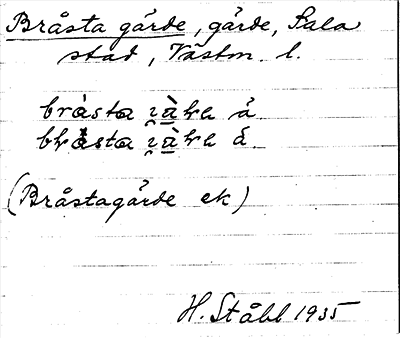 Bråsta gärde, gärde, Sala
stad, Västm. l.
bråsta
bråsta
(Bråstagärde ek)
H. Ståhl 1935